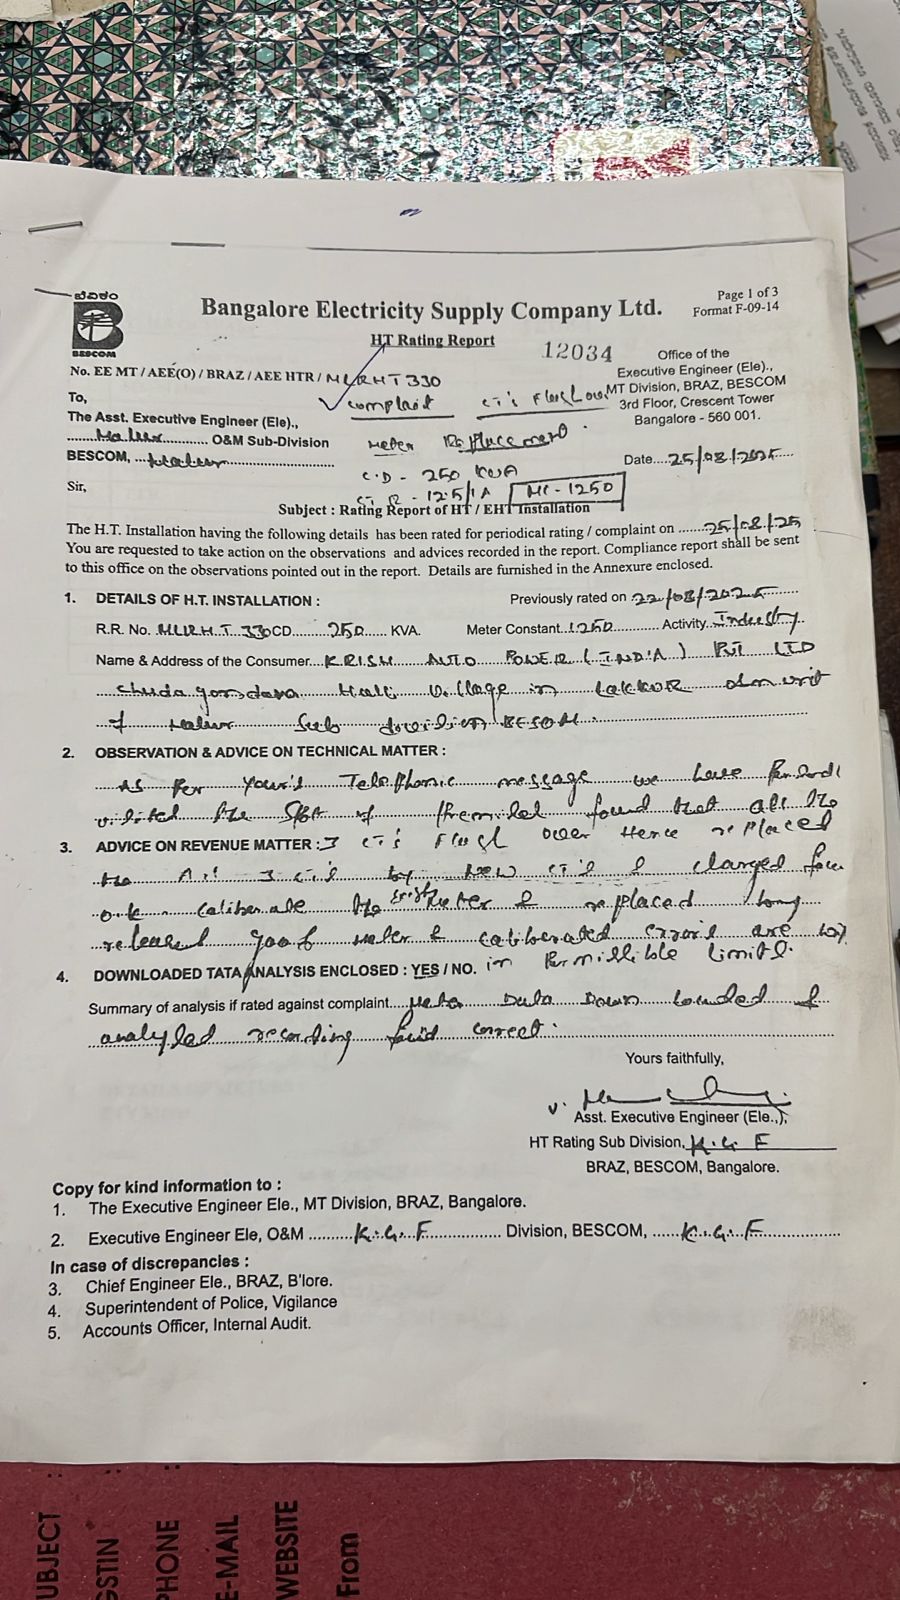 ಬೆವಿಕಂ
BESCOM
Bangalore Electricity Supply Company Ltd.
Page 1 of 3
Format F-09-14
HT Rating Report
12034
No. EE MT / AEE(O) / BRAZ / AEE HTR / MLRHT 330
Office of the
Executive Engineer (Ele).,
MT Division, BRAZ, BESCOM
3rd Floor, Crescent Tower
Bangalore - 560 001.
To,
The Asst. Executive Engineer (Ele).,
Malur O&M Sub-Division
BESCOM, Malur
complaint CT's Flash over
Meter Replacement.
C.D - 250 KVA
CTR - 12.5/1A MC - 1250
Date 25/08/2025
Sir,
Subject : Rating Report of HT / EHT Installation
The H.T. Installation having the following details has been rated for periodical rating / complaint on 25/08/25
You are requested to take action on the observations and advices recorded in the report. Compliance report shall be sent
to this office on the observations pointed out in the report. Details are furnished in the Annexure enclosed.
1. DETAILS OF H.T. INSTALLATION : Previously rated on 22/08/2025
R.R. No. MLRHT 330 CD 250 KVA. Meter Constant 1250 Activity Industry
Name & Address of the Consumer KRISH AUTO POWER (INDIA) PVT LTD
Halli Village in LAKKUR O&M unit
of Malur Sub division BESCOM.
2. OBSERVATION & ADVICE ON TECHNICAL MATTER :
As Per Your's Telephonic message we have
visited the spot of found that all the
3. ADVICE ON REVENUE MATTER : 3 CT's Flash over Hence replaced
the All 3 CT's by New CT's & charged
o.k. caliberate the Meter & replaced
released meter & caliberated errors are
4. DOWNLOADED TATA ANALYSIS ENCLOSED : YES / NO. in Permissible limits.
Summary of analysis if rated against complaint Meter Data Down loaded &
analysed recording correct.
Yours faithfully,
Asst. Executive Engineer (Ele.,),
HT Rating Sub Division, K.G.F
BRAZ, BESCOM, Bangalore.
Copy for kind information to :
1. The Executive Engineer Ele., MT Division, BRAZ, Bangalore.
2. Executive Engineer Ele, O&M K.G.F Division, BESCOM, K.G.F
In case of discrepancies :
3. Chief Engineer Ele., BRAZ, B'lore.
4. Superintendent of Police, Vigilance
5. Accounts Officer, Internal Audit.
GSTIN
PHONE
E-MAIL
WEBSITE
From